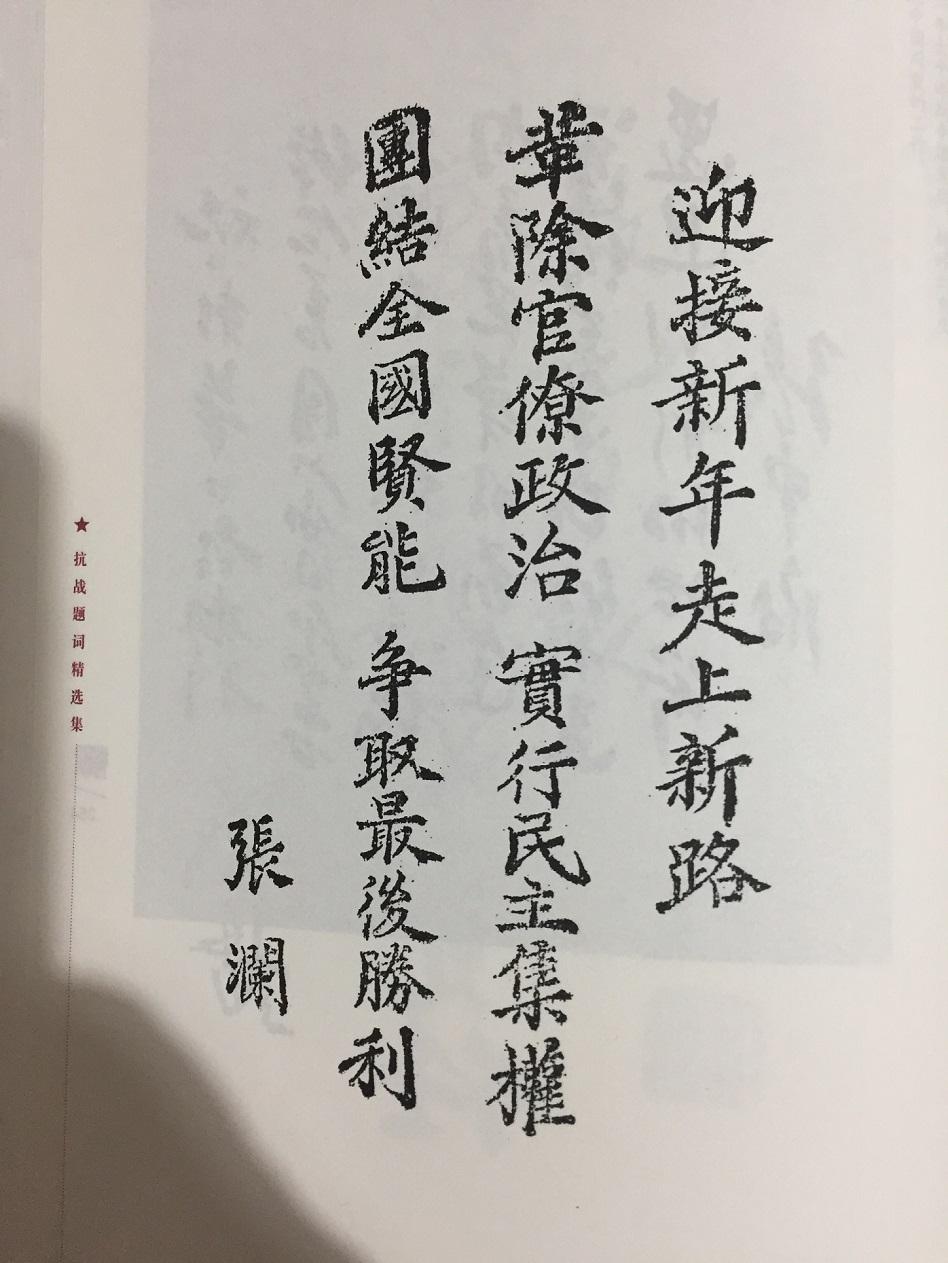 迎接新年走上新路
革除官僚政治 實行民主集權
團結全國賢能 争取最後勝利
張瀾
★抗战题词精选集